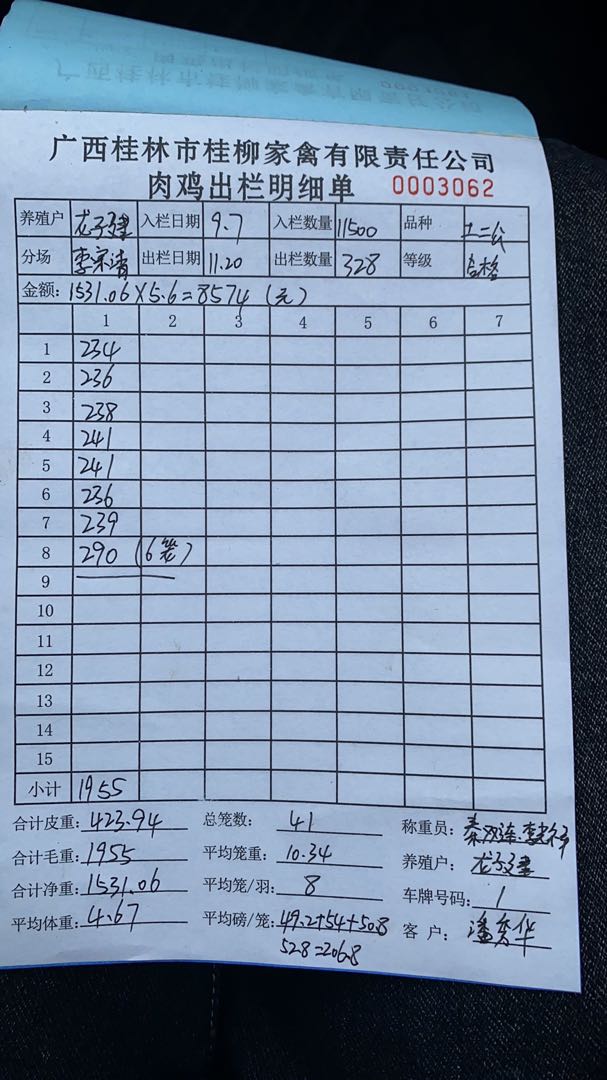 广西桂林市桂柳家禽有限责任公司
肉鸡出栏明细单 0003062
养殖户 龙子建 入栏日期 9.7 入栏数量 11500 品种 土二公
分场 李宗清 出栏日期 11.20 出栏数量 328 等级 合格
金额: 1531.06×5.6=8574 (元)
1 2 3 4 5 6 7
1 234
2 236
3 238
4 241
5 241
6 236
7 239
8 290 (6笼)
9
10
11
12
13
14
15
小计 1955
合计皮重: 423.94 总笼数: 41 称重员: 秦
合计毛重: 1955 平均笼重: 10.34 养殖户: 龙子建
合计净重: 1531.06 平均笼/羽: 8 车牌号码: 1
平均体重: 4.67 平均磅/笼: 49.2+54+50.8 客户: 潘秀华
52.8=206.8